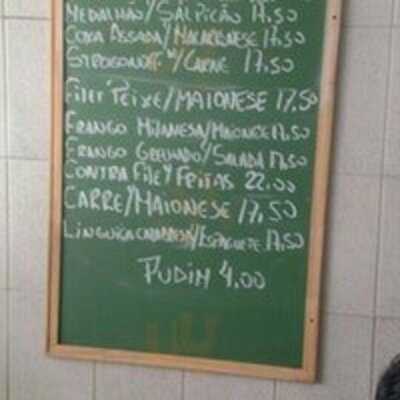 MEDALHÃO/SALPICÃO 17,50
COXA ASSADA/MACARRONESE 17,50
STROGONOFF/CARNE 17,50
FILET PEIXE/MAIONESE 17,50
FRANGO MILANESA/MAIONESE 17,50
FRANGO GRELHADO/SALADA 17,50
CONTRA FILET/FRITAS 22.00
CARRE/MAIONESE 17,50
LINGUIÇA CALABRESA/ESPAGUETE 17,50
PUDIM 4.00